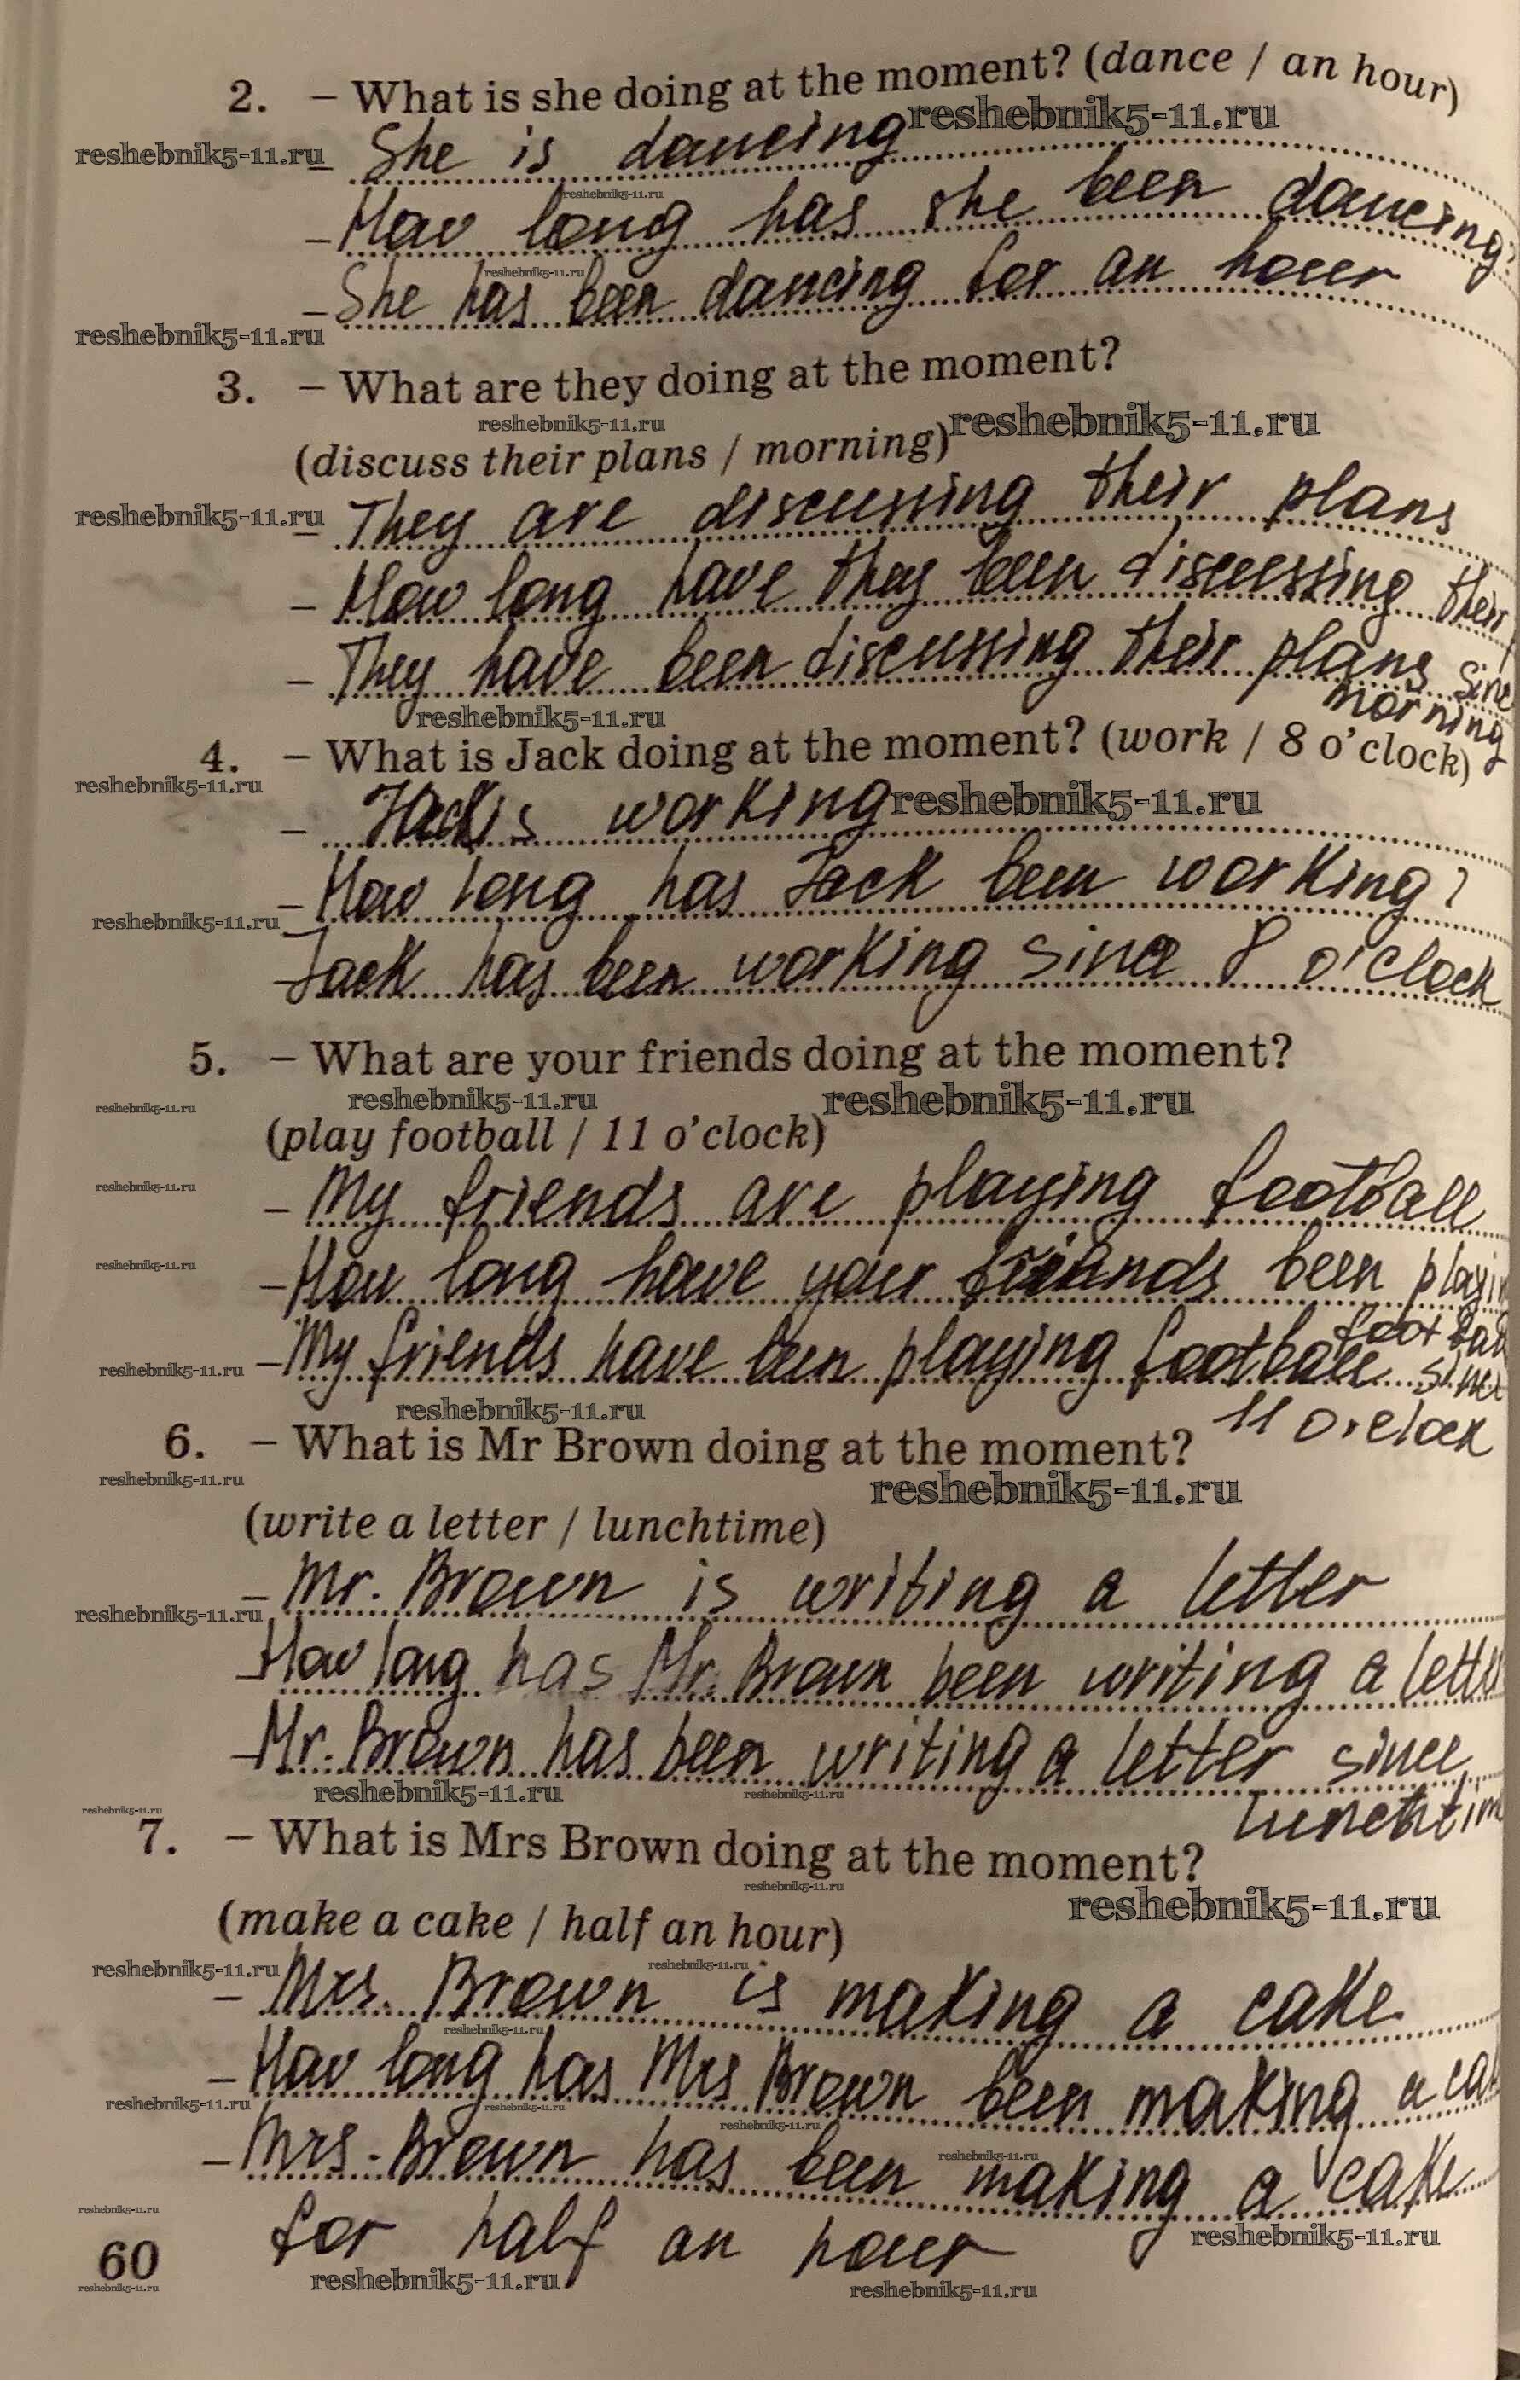 2. – What is she doing at the moment? (dance / an hour)
reshebnik5-11.ru
reshebnik5-11.ru
– She is dancing
reshebnik5-11.ru
– How long has she been dancing?
reshebnik5-11.ru
– She has been dancing for an hour
reshebnik5-11.ru
3. – What are they doing at the moment?
reshebnik5-11.ru
reshebnik5-11.ru
(discuss their plans / morning)
reshebnik5-11.ru
– They are discussing their plans
– How long have they been discussing their
– They have been discussing their plans since
morning
reshebnik5-11.ru
4. – What is Jack doing at the moment? (work / 8 o'clock)
reshebnik5-11.ru
– Jack is working
reshebnik5-11.ru
– How long has Jack been working?
reshebnik5-11.ru
– Jack has been working since 8 o'clock
5. – What are your friends doing at the moment?
reshebnik5-11.ru
reshebnik5-11.ru
reshebnik5-11.ru
(play football / 11 o'clock)
reshebnik5-11.ru
– My friends are playing football
reshebnik5-11.ru
– How long have your friends been playin
football
reshebnik5-11.ru
– My friends have been playing football since
11 o'clock
reshebnik5-11.ru
6. – What is Mr Brown doing at the moment?
reshebnik5-11.ru
reshebnik5-11.ru
(write a letter / lunchtime)
– Mr. Brown is writing a letter
reshebnik5-11.ru
– How long has Mr. Brown been writing a lette
– Mr. Brown has been writing a letter since
lunchtim
reshebnik5-11.ru
reshebnik5-11.ru
reshebnik5-11.ru
7. – What is Mrs Brown doing at the moment?
reshebnik5-11.ru
reshebnik5-11.ru
(make a cake / half an hour)
reshebnik5-11.ru
reshebnik5-11.ru
– Mrs. Brown is making a cake
reshebnik5-11.ru
– How long has Mrs Brown been making a ca
reshebnik5-11.ru
reshebnik5-11.ru
reshebnik5-11.ru
– Mrs. Brown has been making a cake
reshebnik5-11.ru
for half an hour
reshebnik5-11.ru
reshebnik5-11.ru
60
reshebnik5-11.ru
reshebnik5-11.ru
reshebnik5-11.ru